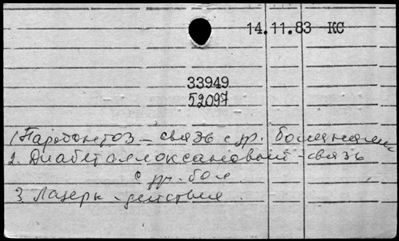 14.11.83 КС
33949
52097
1. Парадонтоз - связь с др. болезнями
2. Диабет аллоксановый - связь
с др. бол
3. Лазеры - действия.